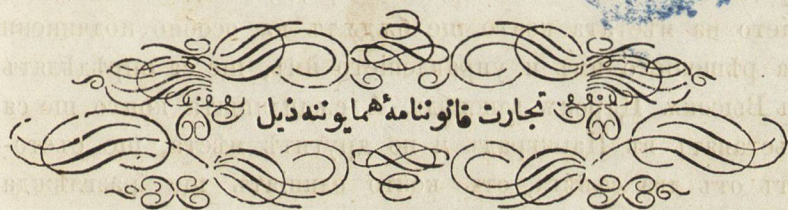 تجارت قانوننامۀ همایوننه ذیل